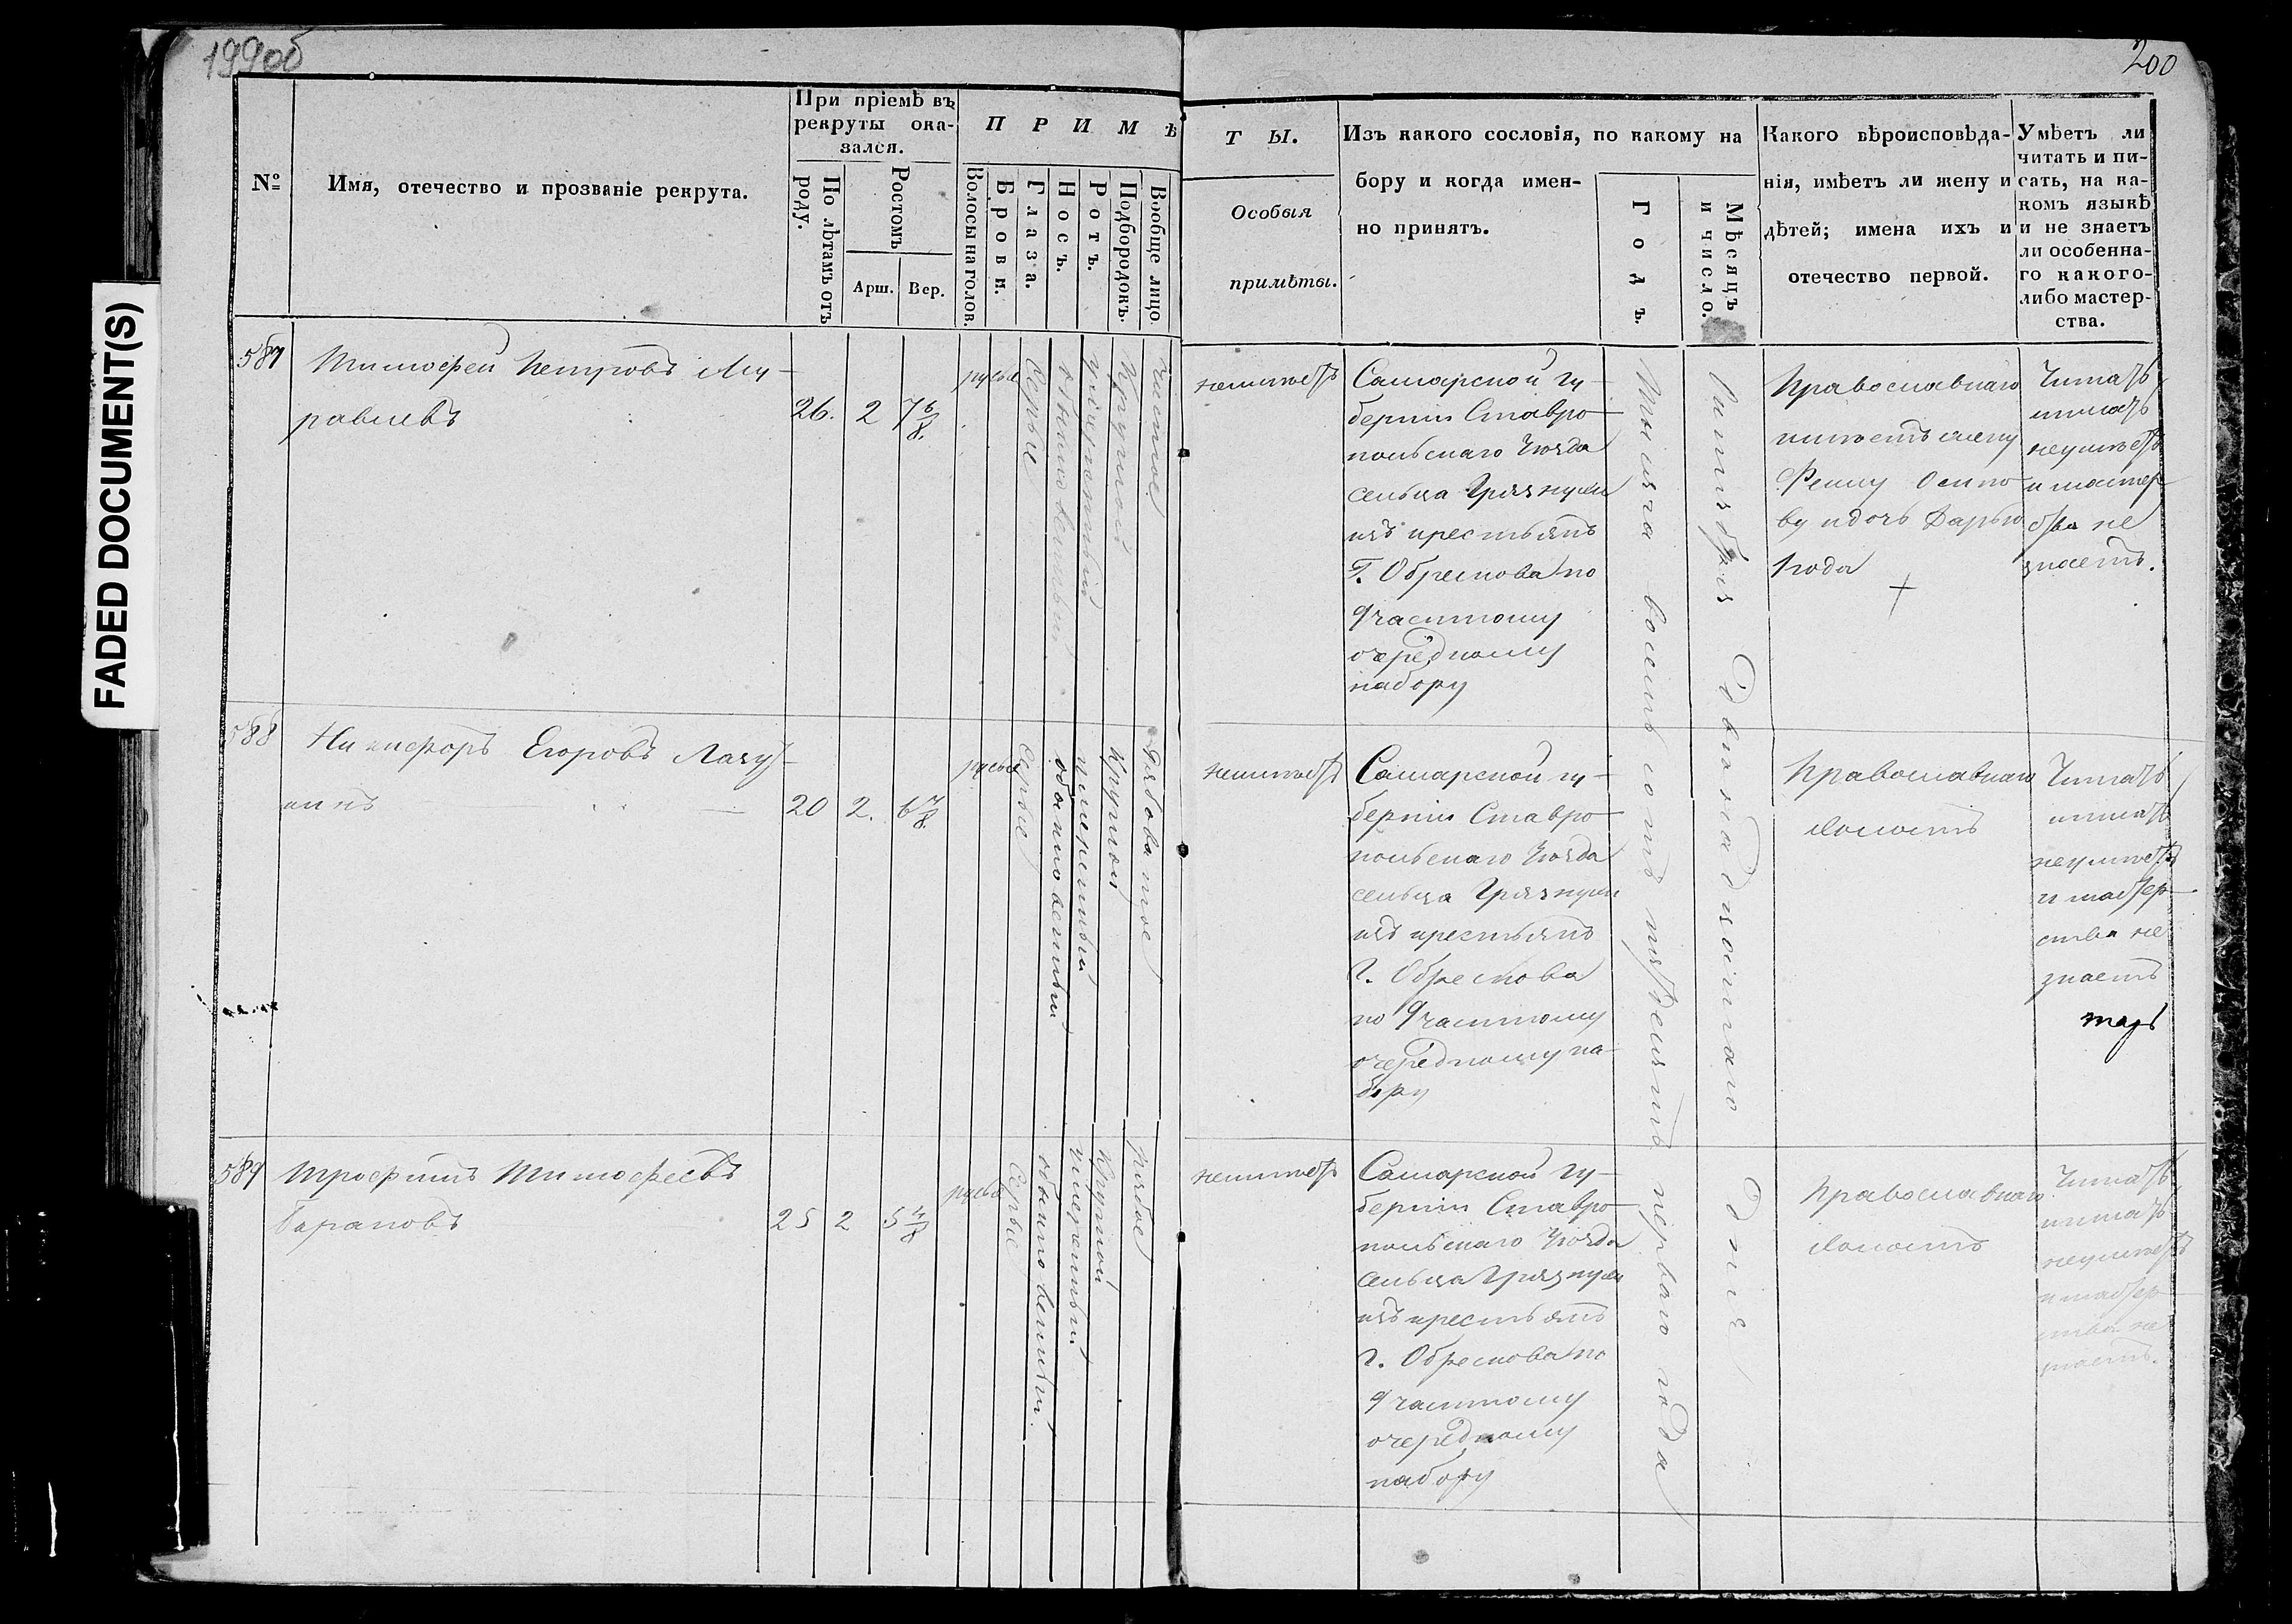 199об
200
FADED DOCUMENT(S)
№
Имя, отечество и прозваніе рекрута.
При пріемѣ въ
рекруты ока-
зался.
По лѣтамъ отъ
роду.
Ростомъ
Арш.
Вер.
ПРИМѢ
Волосы на голов.
Брови.
Глаза.
Носъ.
Ротъ.
Подбородокъ.
Вообще лицо.
ТЫ.
Особыя
примѣты.
Изъ какого сословія, по какому на
бору и когда имен-
но принятъ.
Годъ.
Мѣсяцъ
и число.
Какого вѣроисповѣда-
нія, имѣетъ ли жену и
дѣтей; имена ихъ и
отечество первой.
Умѣетъ ли
читать и пи-
сать, на ка-
комъ языкѣ
и не знаетъ
ли особенна-
го какого-
либо мастер-
ства.
587
Тимофей Петровъ Му-
равлевъ
26.
2
7 6/8.
русые
Серые
обыкновенный
умеренный
Круглой
чистое
неимѣетъ
Самарской гу-
берніи Ставро
польскаго Уѣзда
сельца Грязнухи
изъ крестьянъ
Г. Обрескова по
Частному
очередному
набору
Тысяча восемь сотъ пятьдесятъ перваго года
Сентября Двенадцатаго дня
Православнаго
имѣетъ жену
Осипо
ву и дочь Дарью
1 года
Читать
писать
неумѣетъ
и мастер
ства не
знаетъ.
588
Никифоръ Егоровъ Лазу-
кинъ
20
2.
6 7/8.
русые
Серые
обыкновенный
умеренный
Круглой
Рябоватое
неимѣетъ
Самарской гу-
берніи Ставро
польскаго Уѣзда
сельца Грязнухи
изъ крестьянъ
Г. Обрескова
по Частному
очередному на-
бору
Православнаго
Холостъ
Читать
писать
неумѣетъ
и мастер-
ства не
знаетъ
589
Трофимъ Тимофеевъ
Барановъ
25
2
5 4/8
русые
Серые
обыкновенный
умеренный
Круглой
Рябое
неимѣетъ
Самарской гу-
берніи Ставро
польскаго Уѣзда
сельца Грязнухи
изъ крестьянъ
Г. Обрескова по
Частному
очередному
набору
Православнаго
Холостъ
Читать
писать
неумѣетъ
и мастер
ства не
знаетъ.